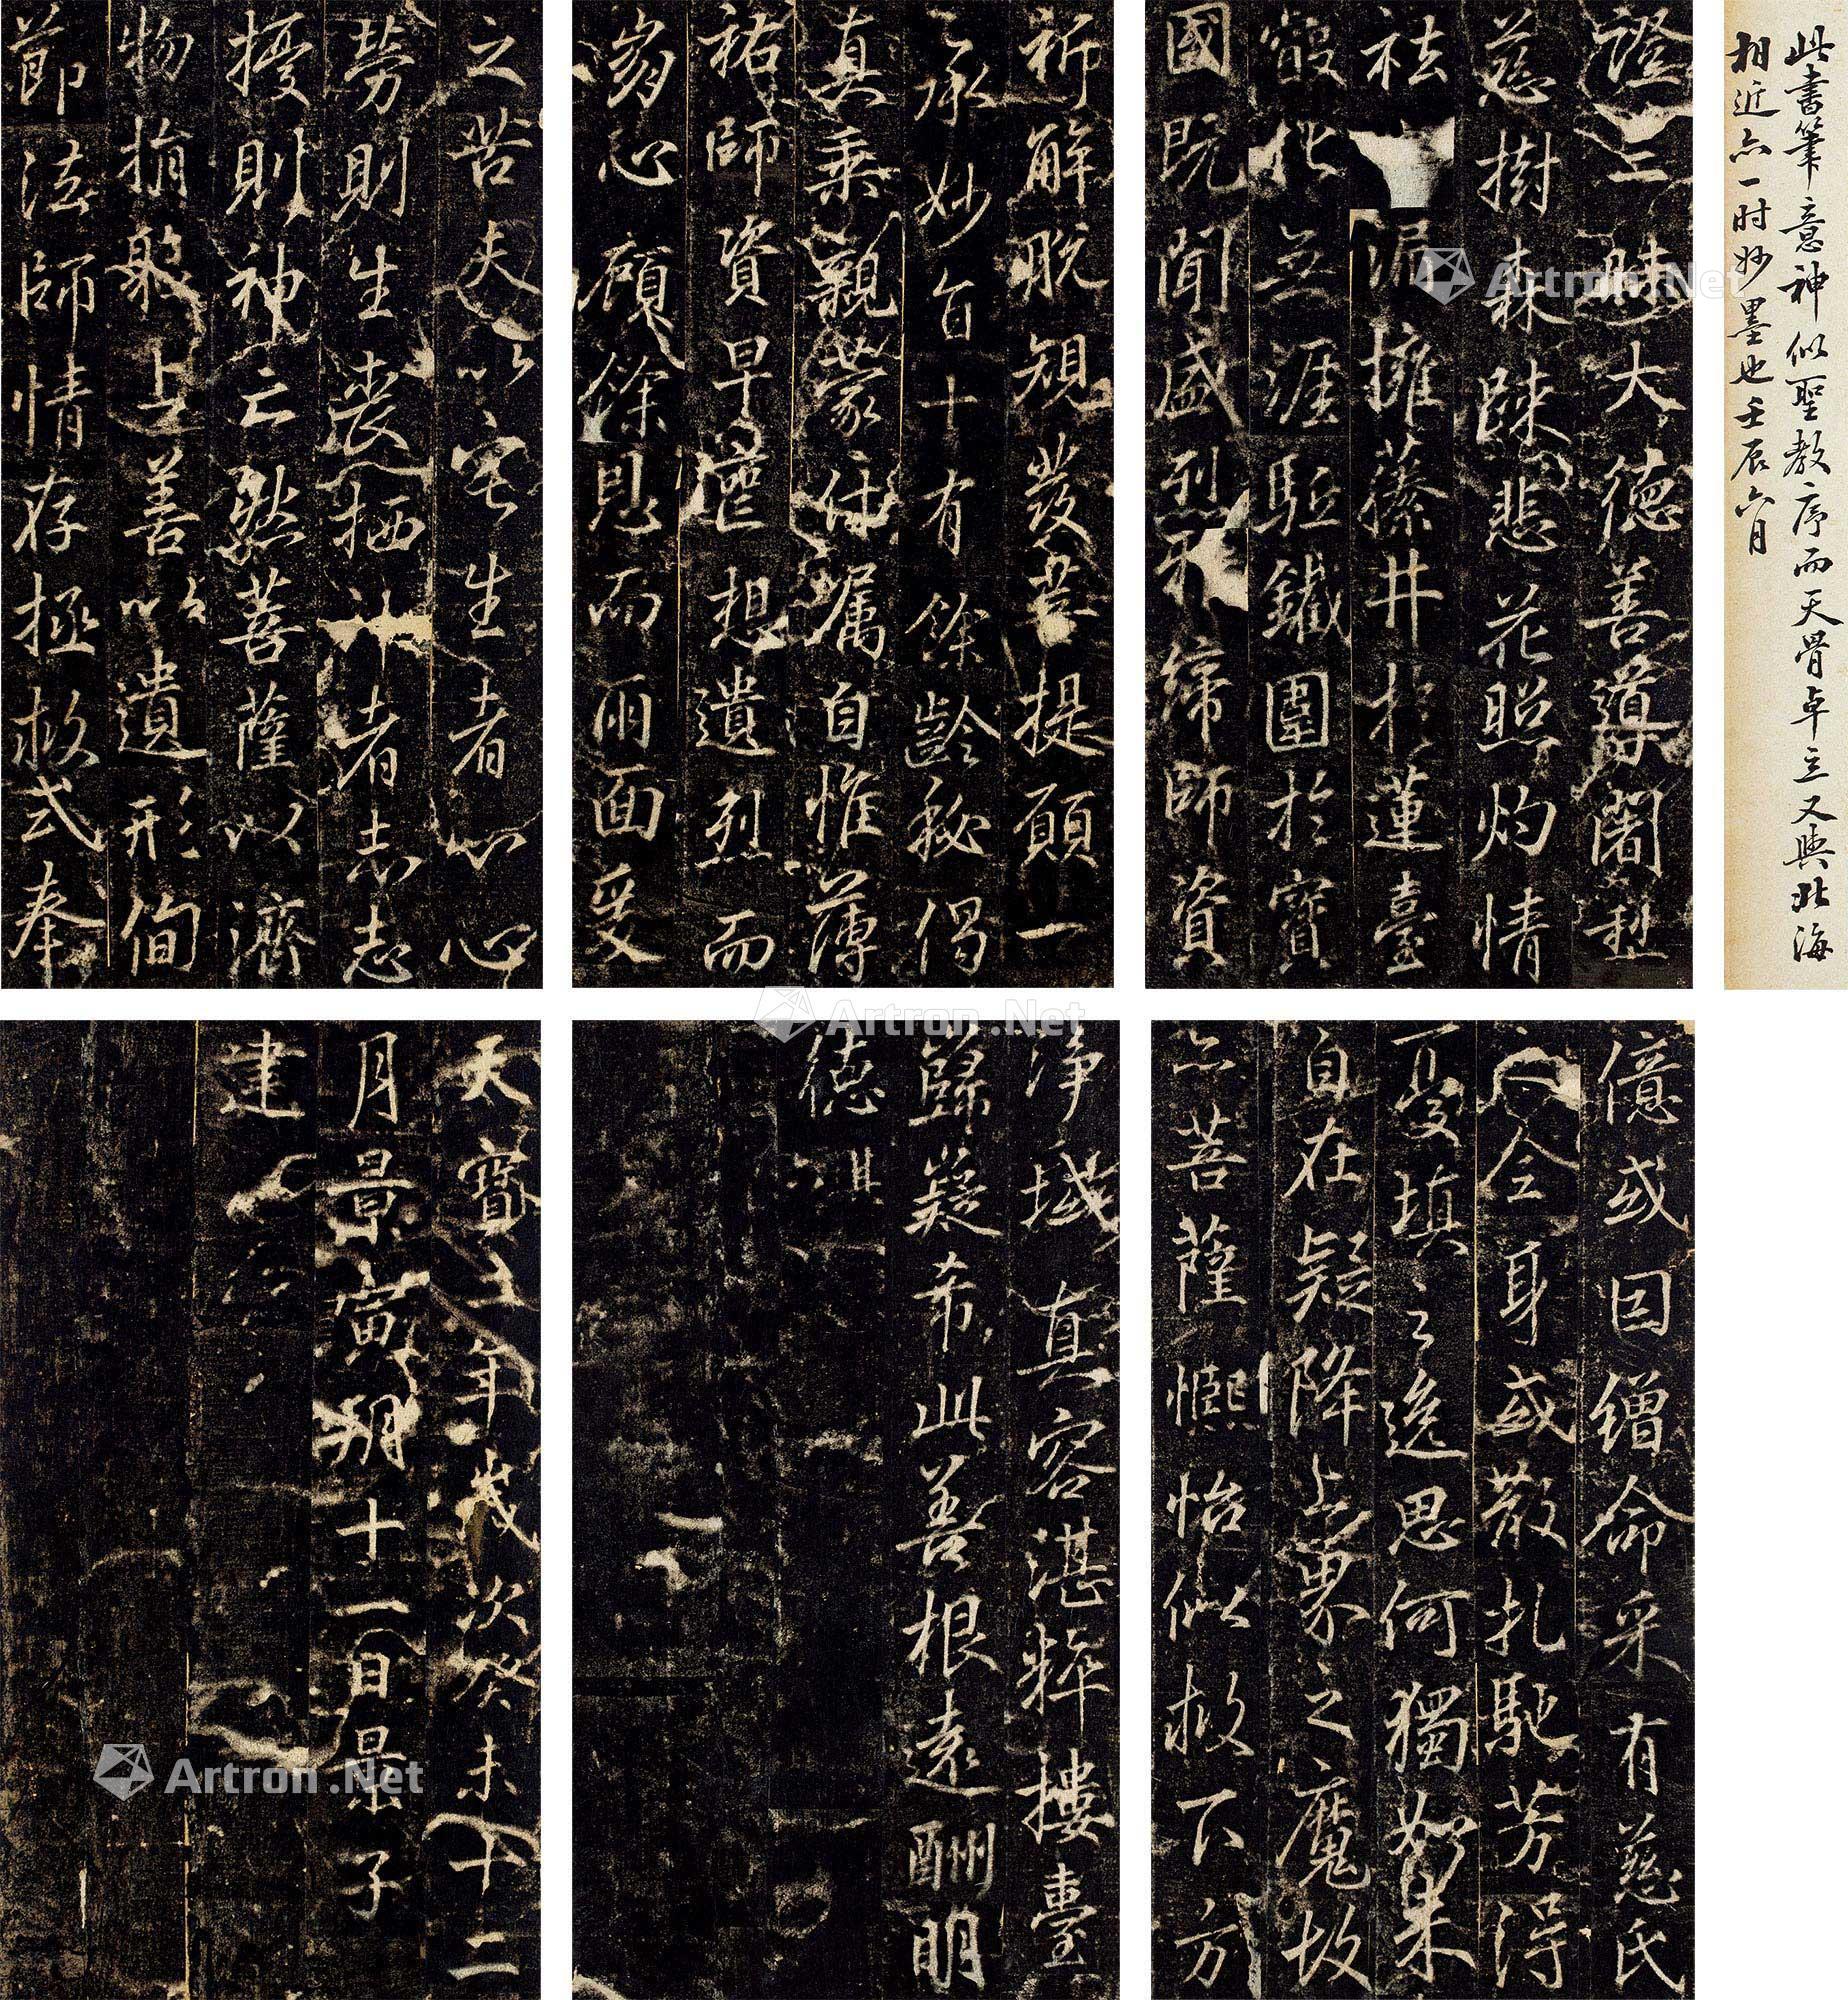 此書筆意神似聖教序而天骨卓立又與北海
相近亦一时妙墨也壬辰六月
證三昧大德善導闍棃
慈樹森踈悲花照灼情
祛漏擁藤井於蓮臺
縠北无涯駈鐵圍於寳
國既聞盛烈來締師資
祈解脱規發菩提願一
承妙旨十有餘齡秘偈
真乘親蒙付属自惟薄
祐師資早喪想遺烈而
崩心顧餘恩而雨面爰
之苦夫以宅生者心心
勞則生喪栖神者志志
擾則神亡然菩薩以濟
物捐躬上善以遺形徇
節法師情存拯救式奉
億或因僧命采有慈氏
全身或散扎馳芳得
憂填之逸思何獨如来
自在疑降上界之魔故
亦菩薩熙怡似救下方
浄域真容湛粹樓臺
歸嶷希此善根遠酬明
德其
天寳二年歳次癸未十二
月景寅朔十一日景子
建
Artron.Net
Artron.Net
Artron.Net